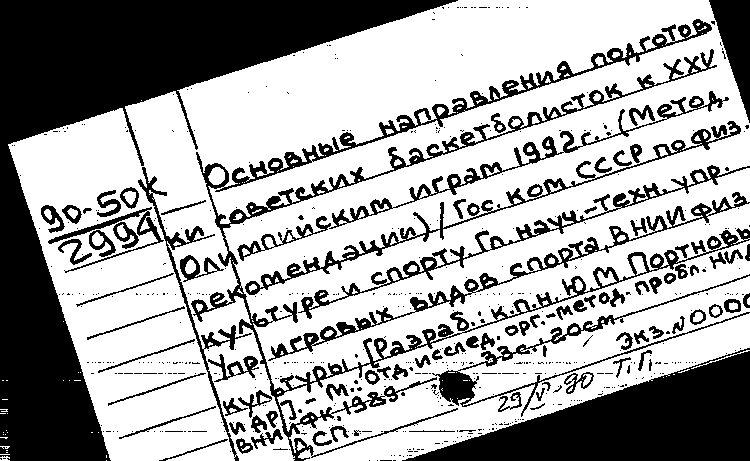 90-50К
2994
Основные направления подготов.
ки советских баскетболисток к XXV
Олимпийским играм 1992г.: (Метод.
рекомендации) / Гос. ком. СССР по физ.
культуре и спорту. Гл. науч.-техн. упр.
Упр. игровых видов спорта, ВНИИ физ.
культуры; [Разраб.: к.п.н. Ю.М. Портновы
и др.]. - М.: отд. исслед. орг.-метод. пробл. НИД
ВНИИФК, 1989. - 33с.; 20см.
ДСП. Экз. N 0000
29/V-90 Т.П.